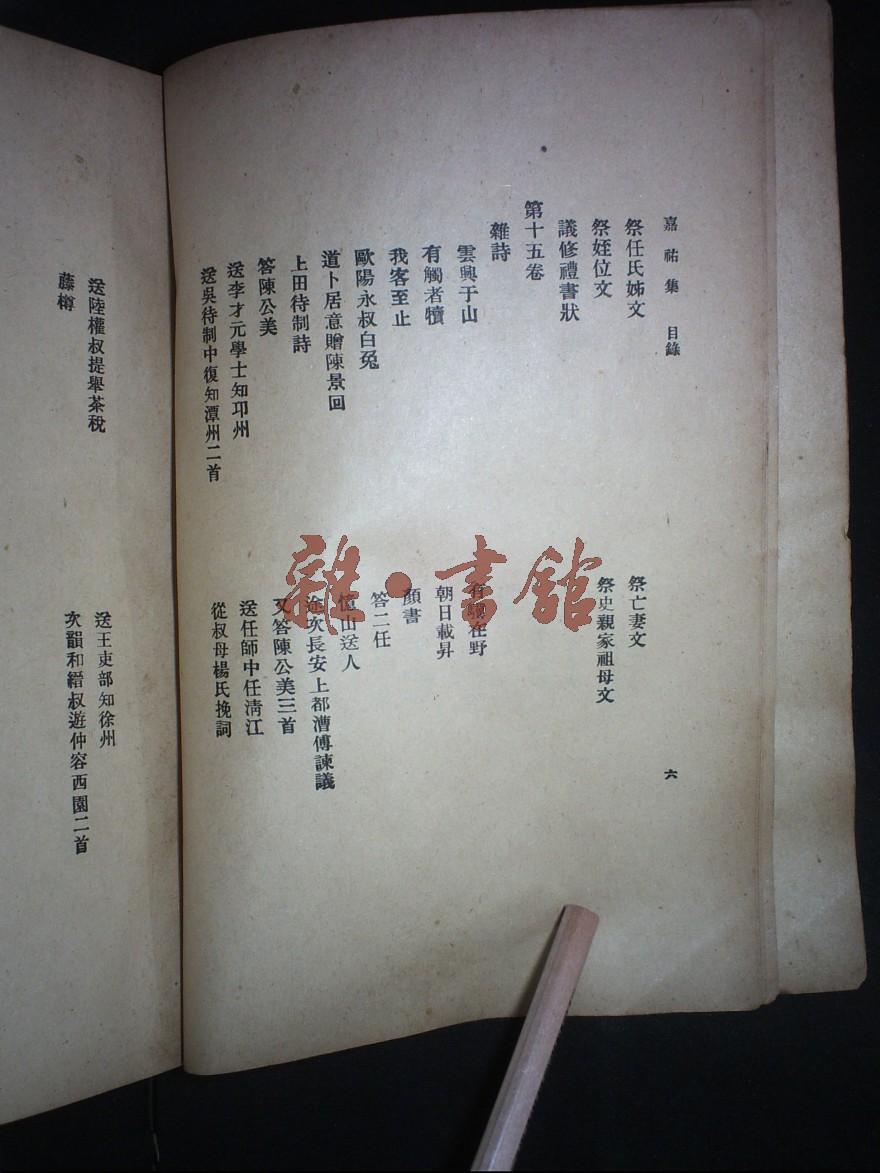 嘉祐集 目錄 六
祭任氏姊文
祭亡妻文
祭姪位文
祭史親家祖母文
議修禮書狀
第十五卷
雜詩
雲興于山
有驥在野
有觸者犢
朝日載昇
我客至止
顏書
歐陽永叔白兔
答二任
道卜居意贈陳景回
憶山送人
上田待制詩
途次長安上都漕傅諫議
答陳公美
又答陳公美三首
送李才元學士知邛州
送任師中任清江
送吳待制中復知潭州二首
從叔母楊氏挽詞
送陸權叔提舉茶稅
送王吏部知徐州
藤樽
次韻和縉叔遊仲容西園二首
雜·書館